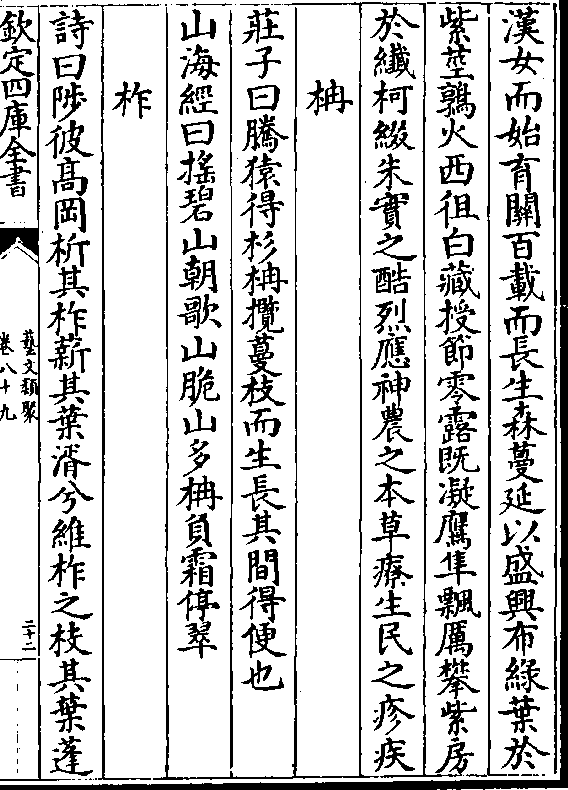 漢女而始育關百載而長生森蔓延以盛興布緑葉於
紫莖鶉火西徂白藏授節零露既凝鷹隼飄厲攀紫房
於纖柯綴朱實之酷烈應神農之本草療生民之疹疾
柟
莊子曰騰猿得杉柟攬蔓枝而生長其間得便也
山海經曰搖碧山朝歌山脆山多柟負霜停翠
柞
詩曰陟彼髙岡析其柞薪其葉湑兮維柞之枝其葉蓬
欽定四庫全書
藝文類聚
卷八十九
二十二